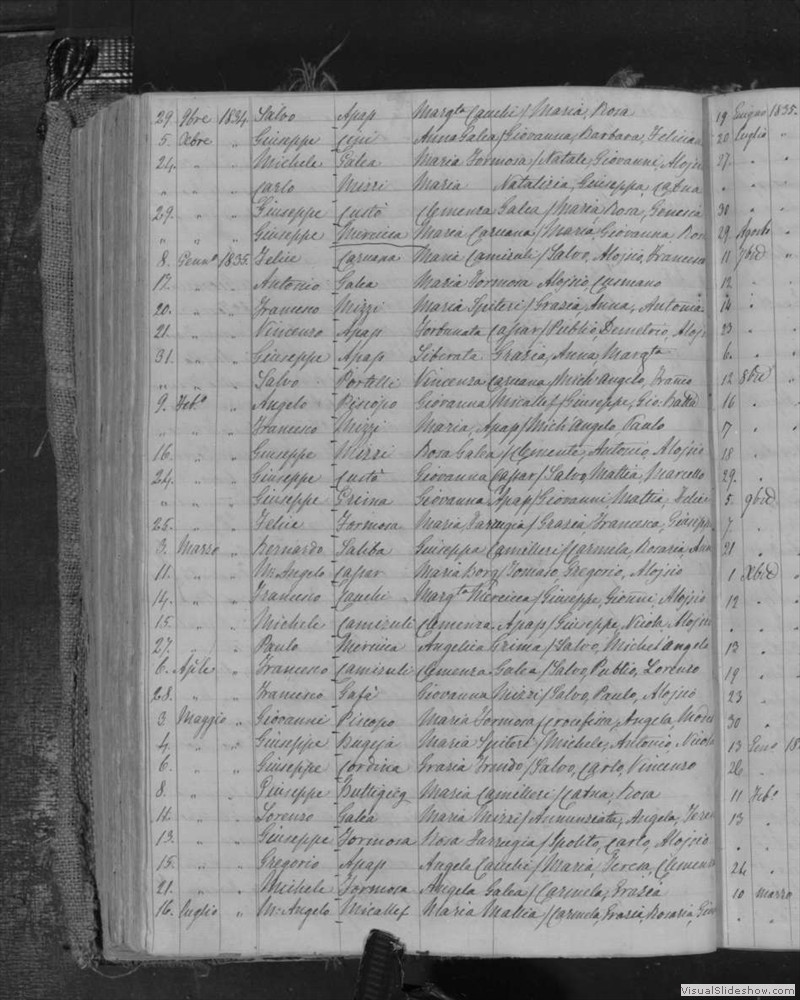 29. 9bre 1834 Salvo Apap Margta Cauchi / Maria, Rosa
5. Xbre " Giuseppe Cini Anna Galea / Giovanna, Barbara, Felicia
24. " " Michele Galea Maria Formosa / Natale, Giovanni, Alojsio
" " " Carlo Mizzi Maria Natalizia, Giuseppa, Catna
29. " " Giuseppe Custò Clemenza Galea / Maria Rosa, Genesia
" " " Giuseppe Mercieca Maria Caruana / Maria, Giovanna Rosa
8. Genno 1835 Felice Caruana Maria Camizuli / Salvo, Alojsio, Francesco
12. " " Antonio Galea Maria Formosa Alojsio,
20. " " Francesco Mizzi Maria Spiteri / Grazia, Anna, Antonia
21. " " Vincenzo Apap Fortunata Caspar / Publio, Demetrio, Alojs
31. " " Giuseppe Apap Liberata Grazia, Anna, Margta
" " " Salvo Portelli Vincenza Caruana Mich: Angelo, Franco
9. Febo " Angelo Piscopo Giovanna Micallef / Giuseppe, Gio: Batta
" " " Francesco Mizzi Maria Apap / Mich: Angelo, Paulo
16. " " Giuseppe Mizzi Rosa Galea / Clemente, Antonio, Alojsio
24. " " Giuseppe Custò Giovanna Caspar / Salvo, Mattia, Marcello
" " " Giuseppe Grima Giovanna Apap / Giovanni Mattia, Felice
25. " " Felice Formosa Maria Farrugia / Grazia, Francesca, Giusepp
3. Marzo " Bernardo Saliba Giuseppa Camilleri / Carmela, Rosaria, Anna
11. " " M: Angelo Caspar Maria Borg / Tomaso, Gregorio, Alojsio
14. " " Francesco Cauchi Margta Mercieca / Giuseppe, Gioñni, Alojsio
15. " " Michele Camizuli Clemenza Apap / Giuseppe, Nicola, Alojsio
27. " " Paulo Mercieca Angelica Grima / Salvo, Michel'angelo
6. Aple " Francesco Camizuli Clemenza Galea / Salvo, Publio, Lorenzo
28. " " Francesco Gafà Giovanna Mizzi / Salvo, Paulo, Alojsio
3. Maggio " Giovanni Piscopo Maria Formosa / Crocefissa, Angela,
4. " " Giuseppe Bugeja Maria Spiteri / Michele, Antonio, Nicola
6. " " Giuseppe Cordina Grazia / Salvo, Carlo, Vincenzo
8. " " Giuseppe Buttigieg Maria Camilleri / Catna, Rosa
11. " " Lorenzo Galea Maria Mizzi / Annunziata, Angela, Teresa
13. " " Giuseppe Formosa Rosa Farrugia / Ipolito, Carlo, Alojsio
15. " " Gregorio Apap Angela Cauchi / Maria, Teresa, Clemenza
21. " " Michele Formosa Angela Galea / Carmela, Grazia
16. Luglio " M: Angelo Micallef Maria Mattia / Carmela, Grazia, Rosaria, Gio
19 Giugno 1835.
20 Luglio "
27. " "
" " "
30 " "
29. Agosto "
11 7bre "
12 " "
14 " "
23 " "
6. " "
12 8bre "
16 " "
7 " "
18 " "
29. " "
5. 9bre "
7 " "
21 " "
1 Xbre "
12 " "
" " "
13 " "
19 " "
23 " "
30 " "
13 Geno 18
26 "
11 Febo
13 "
" "
24 "
10 Marzo
" "
VisualSlideshow.com